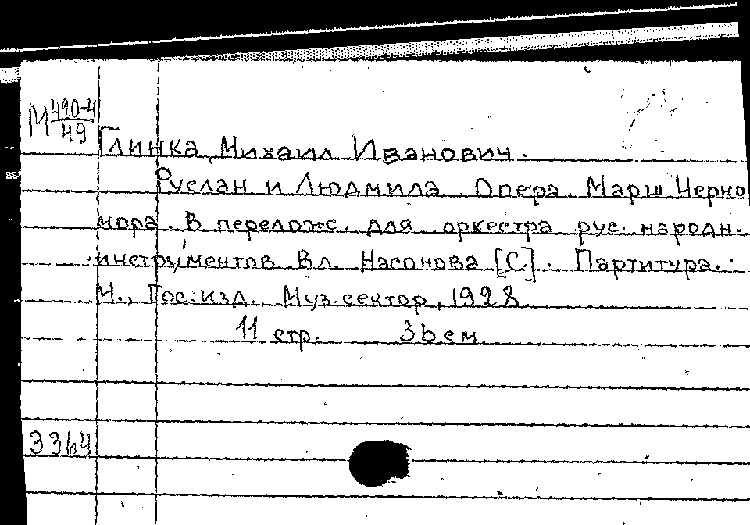 М 490-4
49
Глинка, Михаил Иванович.
Руслан и Людмила. Опера. Марш Черно
мора. В перелож. для оркестра рус. народн.
инструментов Вл. Насонова [С]. Партитура.
М., Гос. изд. Муз. сектор, 1928
11 стр. 36 см
3364